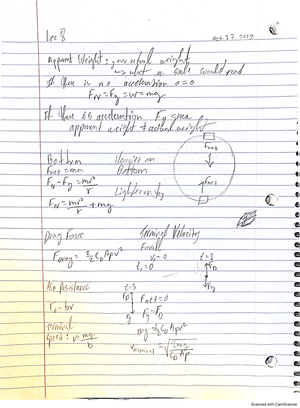 Lec 8
Oct. 27
Apparent Weight: your actual weight
↳ what a scale would read
If there is no acceleration a=0
F_N = F_g = w = mg
If there is acceleration F_N = ma
apparent weight ≠ actual weight
Bottom
F_net = ma
F_N - F_g = mv²/r
F_N = mv²/r + mg
Heavier on
Bottom
Lighter on top
F_net
Drag Force
F_drag = ½ C_D A ρ v²
Terminal Velocity
Fall
v = 0
t = 0
t = 1
F_D
F_g
Air Resistance
F_D = bv
Terminal
Speed: v = mg/b
t = 5
F_D
F_g
F_net = 0
F_g = F_D
mg = ½ C_D A ρ v²
v_terminal = √(2mg / C_D A ρ)
Scanned with CamScanner